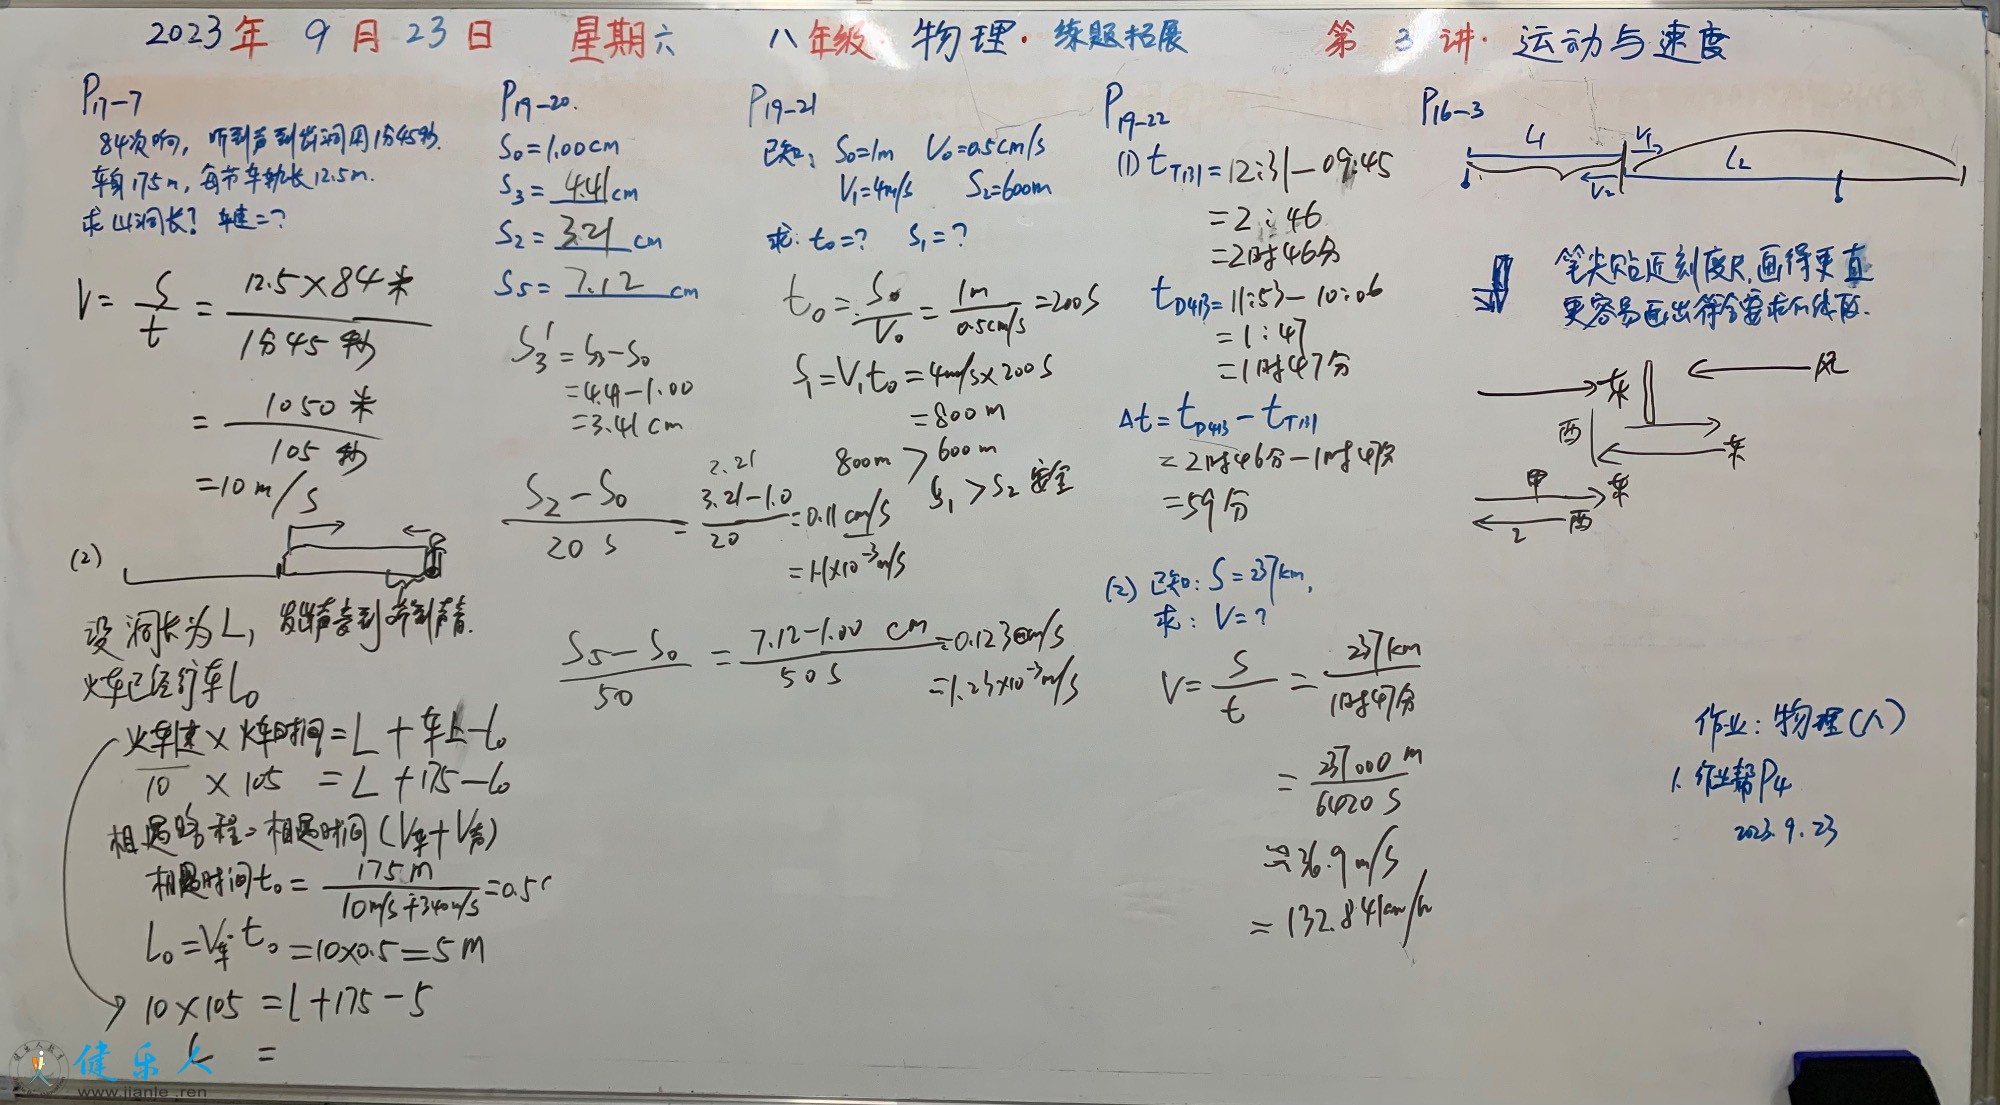 2023年 9月23日 星期六 八年级·物理·练题拓展 第3讲·运动与速度
P17-7
84次响，听到声到出洞用1分45秒.
车身175m，每节车轨长12.5m.
求山洞长？车速=？
V= S/t = 12.5×84米/1分45秒
= 1050米/105秒
=10m/s
(2)
设洞长为L，发出声音到听到声音.
火车已经行车L0
火车速×火车时间=L+车长-L0
10 × 105 = L+175-L0
相遇路程=相遇时间(V车+V声)
相遇时间t0= 175m/10m/s+340m/s =0.5s
L0=V车·t0=10×0.5=5m
10×105=L+175-5
L =
P19-20.
S0=1.00cm
S3=4.41cm
S2=3.21cm
S5=7.12cm
S3'=S3-S0
=4.41-1.00
=3.41cm
2.21
S2-S0/20s = 3.21-1.0/20 =0.11cm/s
=1.1×10⁻³m/s
S5-S0/50 = 7.12-1.00 cm/50s =0.123cm/s
=1.23×10⁻³m/s
P19-21
已知：S0=1m V0=0.5cm/s
V1=4m/s S2=600m
求：t0=？ S1=？
t0= S0/V0 = 1m/0.5cm/s =200s
S1=V1t0=4m/s×200s
=800m
800m>600m
S1>S2 安全
P19-22
(1) tT131=12:31-09:45
=2:46
=2时46分
tD413=11:53-10:06
=1:47
=1时47分
Δt=tD413-tT131
=2时46分-1时47分
=59分
(2) 已知：S=237km,
求：V=？
V= S/t = 237km/1时47分
= 237000m/6420s
≈36.9m/s
=132.84km/h
P16-3
L1 V1 L2
V2
笔尖贴近刻度尺,画得更直
更容易画出符合要求的线段.
东 风
西 东
甲 东
乙 西
作业：物理(人)
1. 作业帮P4
2023.9.23
健乐人
www.jianle.ren